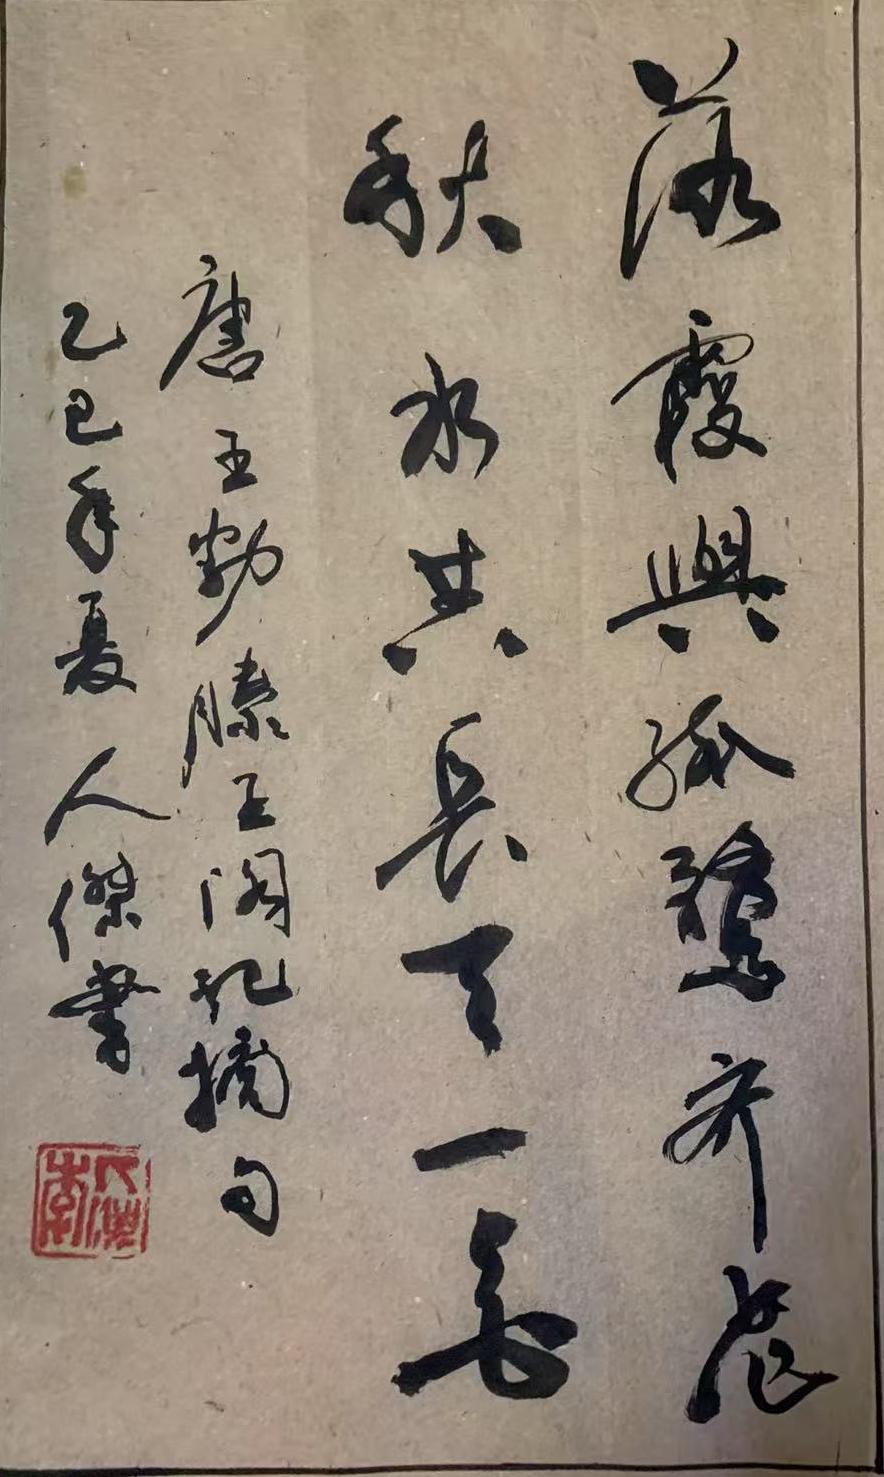 落霞與孤鶩齐飛
秋水共長天一色
唐王勃滕王阁记摘句
乙巳年夏人傑書